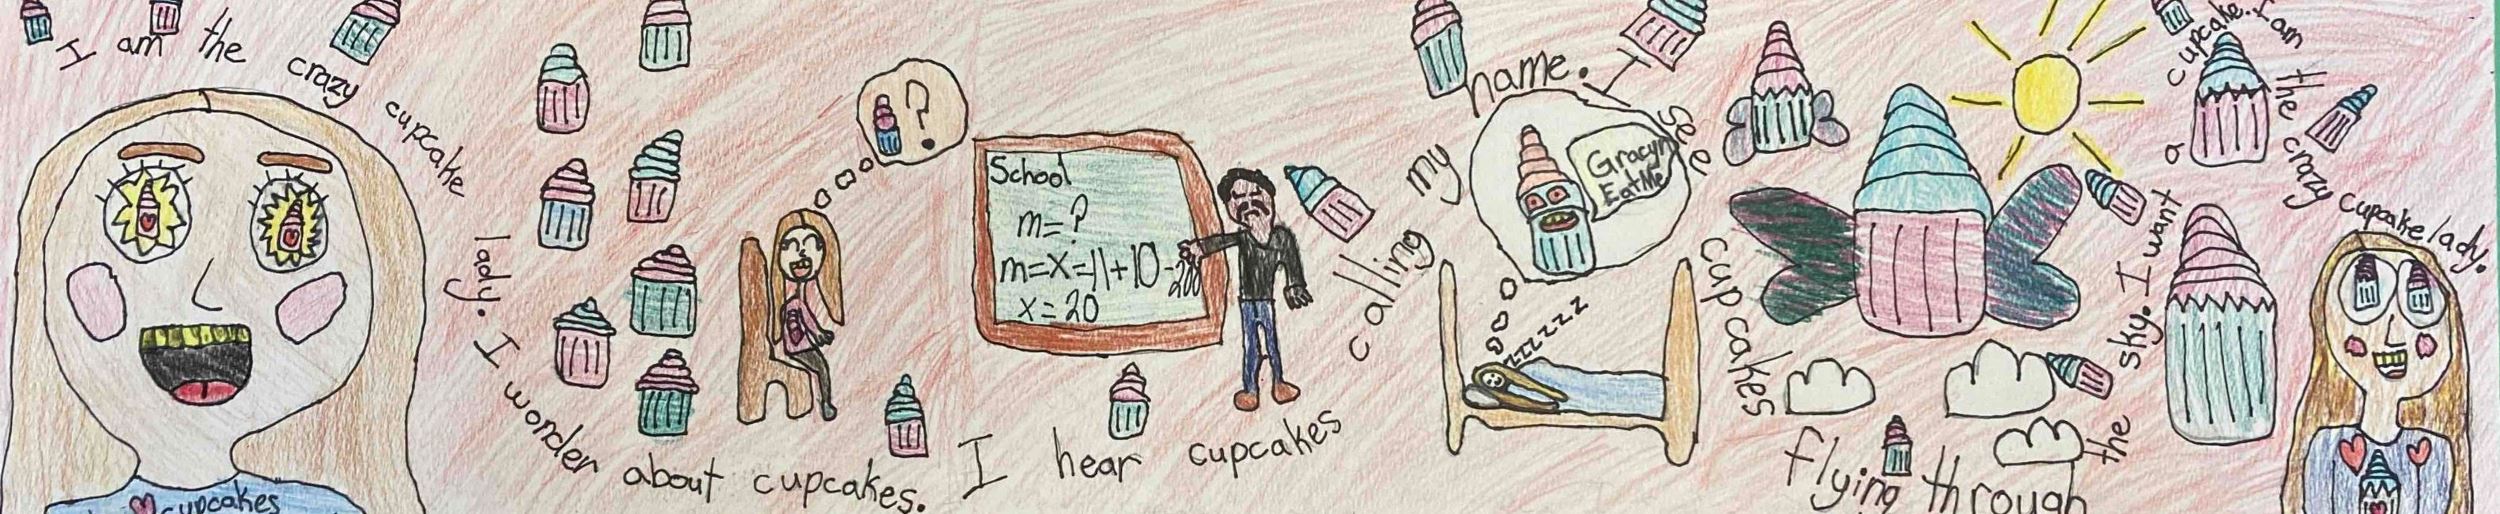 I am the crazy cupcake lady. I wonder about cupcakes. I hear cupcakes calling my name. I see cupcakes flying through the sky. I want a cupcake. I am the crazy cupcake lady.
♥ cupcakes
?
School
m=?
m=x=11+10-200
x=20
Gracyn
Eat Me
zzzzzz